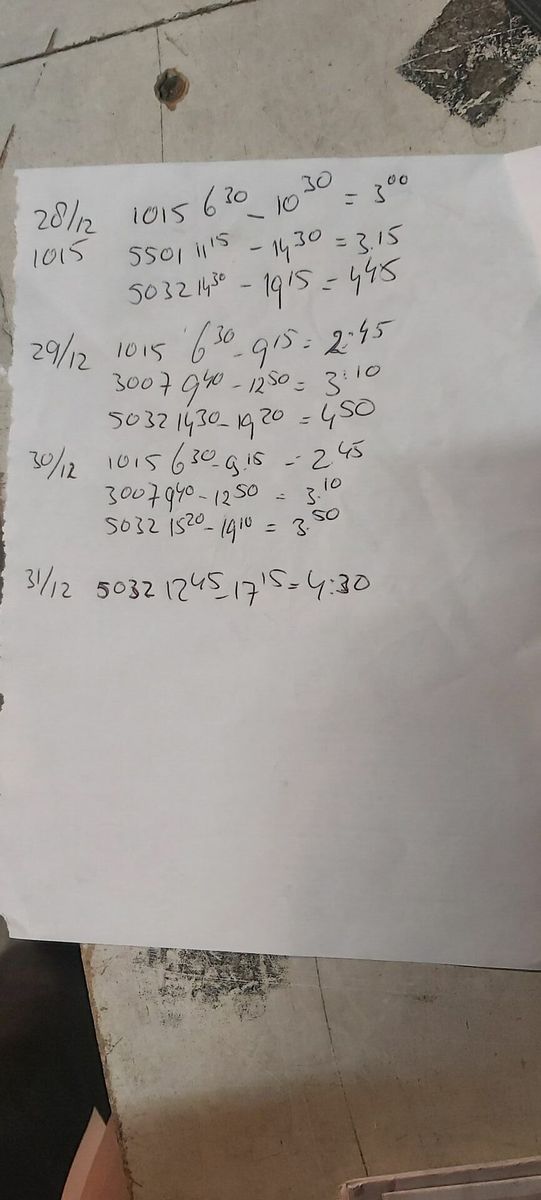 28/12 1015 6³⁰ - 10³⁰ = 3⁰⁰
1015 5501 11¹⁵ - 14³⁰ = 3.15
5032 14³⁰ - 19¹⁵ = 4⁴⁵
29/12 1015 6³⁰ - 9¹⁵ = 2:45
3007 9⁴⁰ - 12⁵⁰ = 3:10
5032 14³⁰ - 19²⁰ = 4⁵⁰
30/12 1015 6³⁰ - 9.¹⁵ = 2.⁴⁵
3007 9⁴⁰ - 12⁵⁰ = 3.¹⁰
5032 15²⁰ - 19¹⁰ = 3.⁵⁰
31/12 5032 12⁴⁵ - 17¹⁵ = 4:30